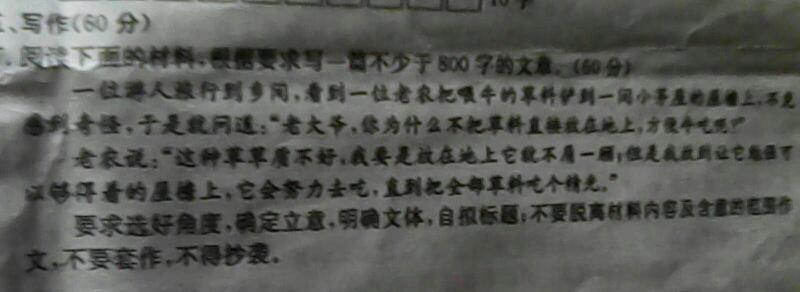 、写作(60分)
阅读下面的材料,根据要求写一篇不少于800字的文章。(60分)
一位游人旅行到乡间,看到一位老农把喂牛的草料铲到一间小茅屋的屋檐上,不免
感到奇怪,于是就问道:“老大爷,你为什么不把草料直接放在地上,方便牛吃呢?”
老农说:“这种草草质不好,我要是放在地上它就不屑一顾;但是我放到让它勉强可
以够得着的屋檐上,它会努力去吃,直到把全部草料吃个精光。”
要求选好角度,确定立意,明确文体,自拟标题;不要脱离材料内容及含意的范围作
文,不要套作,不得抄袭。